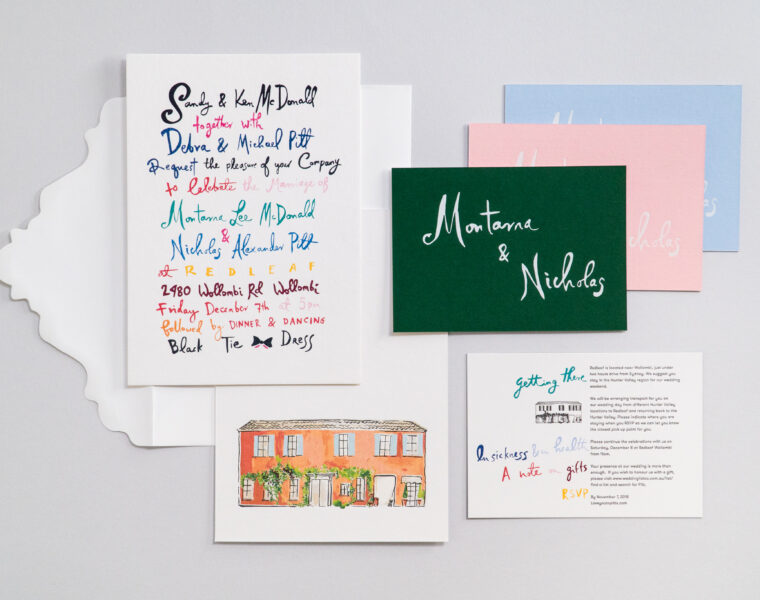 Sandy & Ken McDonald
together with
Debra & Michael Pitt
Request the pleasure of your Company
to Celebrate the Marriage of
Montarna Lee McDonald
&
Nicholas Alexander Pitt
at REDLEAF
2980 Wollombi Rd Wollombi
Friday December 7th at 5pm
followed by DINNER & DANCING
Black Tie Dress
Montarna
&
Nicholas
getting there
Redleaf is located near Wollombi, just under
two hours drive from Sydney. We suggest you
stay in the Hunter Valley region for our wedding
weekend.
We will be arranging transport for you on
our wedding day from different Hunter Valley
locations to Redleaf and returning back to the
Hunter Valley. Please indicate where you are
staying when you RSVP so we can let you know
the closest pick up point for you.
In sickness & in health
Please continue the celebrations with us on
Saturday, December 8 at Redleaf Wollombi
from 11am.
A note on gifts
Your presence at our wedding is more than
enough. If you wish to honour us with a gift,
please visit
find a list and search for Pitt.
RSVP
By November 7, 2018